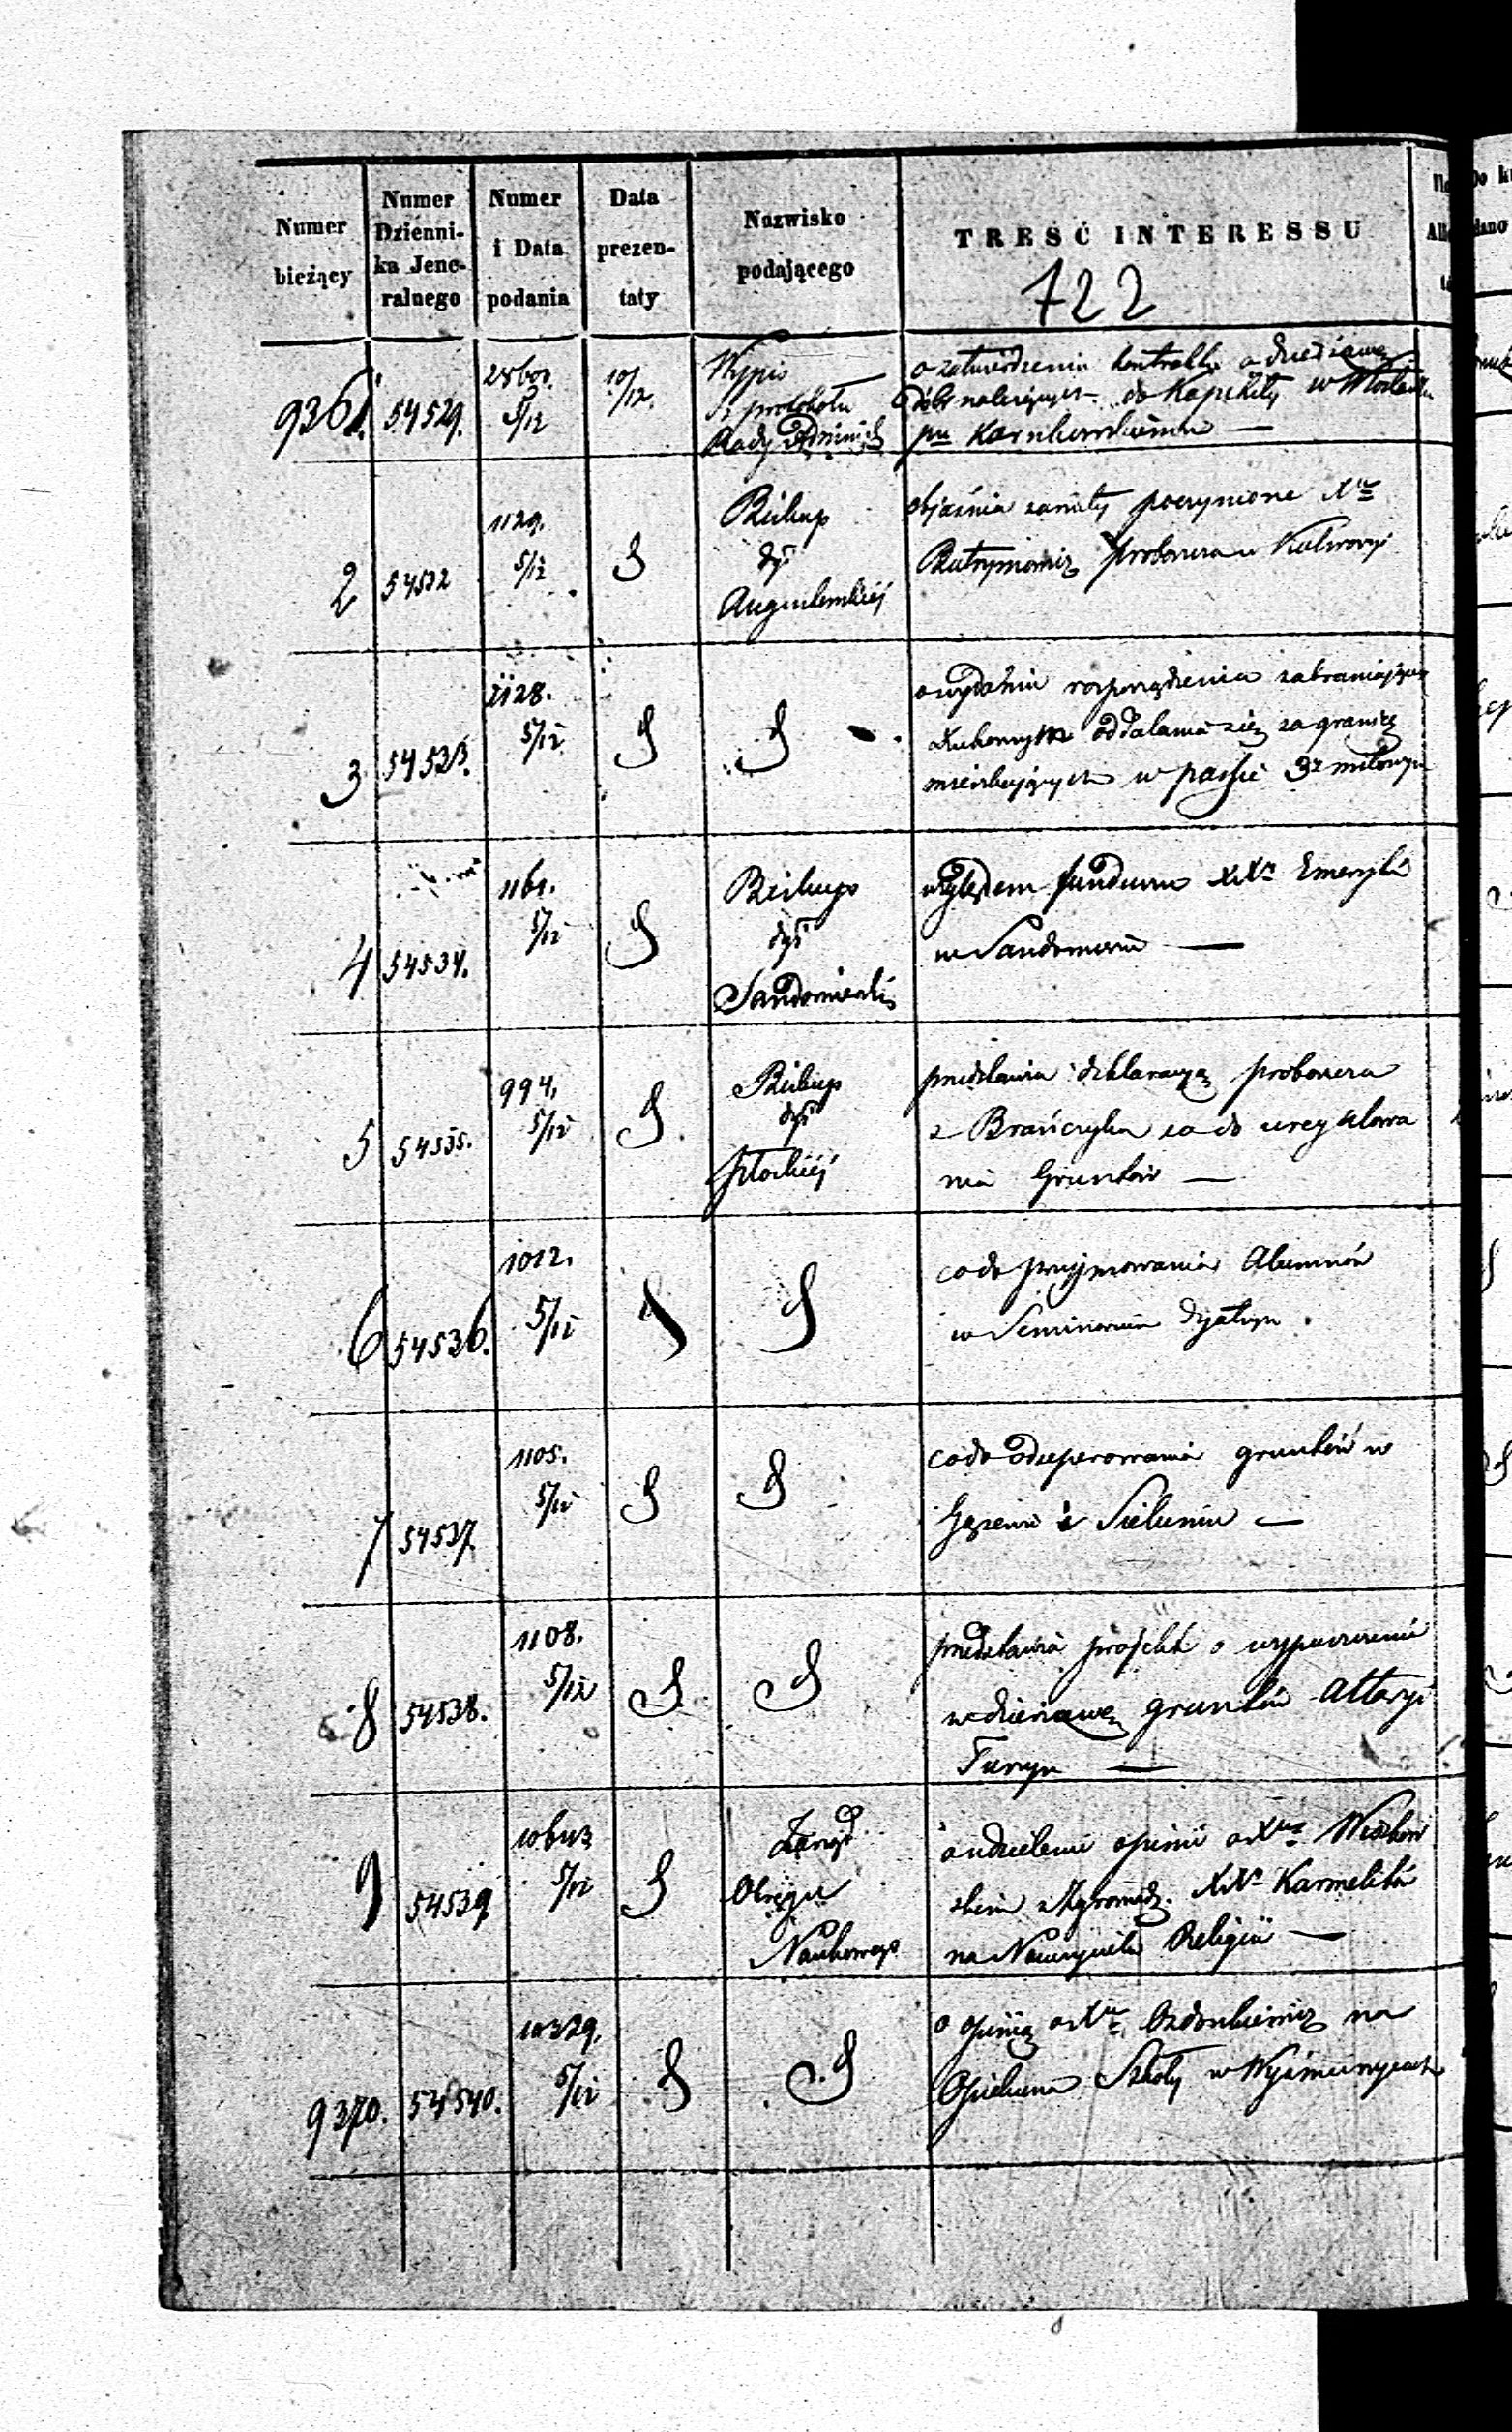 Numer bieżący
Numer Dzienni-ka Jene-ralnego
Numer i Data podania
Data prezen-taty
Nazwisko podającego
TREŚĆ INTERESSU
722
9361. 54529. 5/12 10/12. Wypis z protokołu Rady Administ
o zatwierdzenie kontraktu o dzierżawę
dóbr należących do Kapituły w
pu
2 54532 1129. 5/12 Biskup dyi Augustowskiéj
objaśnia zarzuty poczynione Xu
Butrymowicz proboszcza w Kalwaryi
3 54533. 1128. 5/12
o wydanie rozporządzenia zabraniającego
Duchownym oddalania się za granicę
mieszkających w passie 3ch milowym
4 54534. 1161. 5/12 Biskup dyi Sandomierskiéj
względem funduszu XXy Emerytów
w Sandomierzu —
5 54535. 994. 5/12 Biskup dyi Płockiéj
przedstawia deklaracyą proboszcza
z Brańczyka co do uregulowa
nia Gruntów —
6 54536. 1012. 5/12
co do przyjmowania Alumnów
w Seminarium Dyetym.
7 54537. 1105. 5/12
co do odseperowania gruntów w
i Sieluniu —
8 54538. 1108. 5/12
przedstawia projekt o wypuszczeniu
w dzierżawę gruntów Altaryi
—
9 54539 5/12 Zarząd Okręgu Naukowego
o udzielenie opinii o Xu
skim z Zgromadz. XXy Karmelitów
na Nauczyciela Religii —
9370. 54540. 10329. 5/12
o opinią o Xu na
Opiekuna Szkoły w